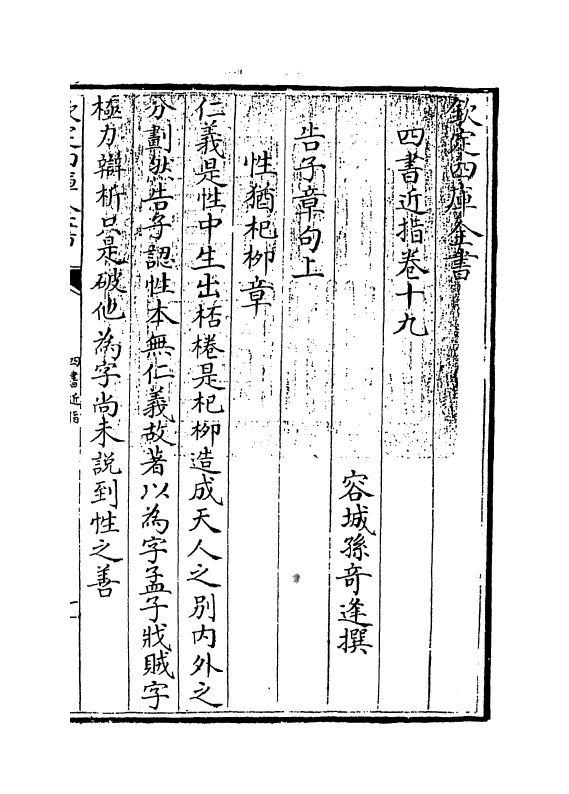 欽定四庫全書
四書近指卷十九
容城孫奇逢撰
告子章句上
性猶杞柳章
仁義是性中生出桮棬是杞柳造成天人之別内外之
分劃然告子認性本無仁義故著以為字孟子戕賊字
極力辯析只是破他為字尚未說到性之善
欽定四庫全書
四書近指
一